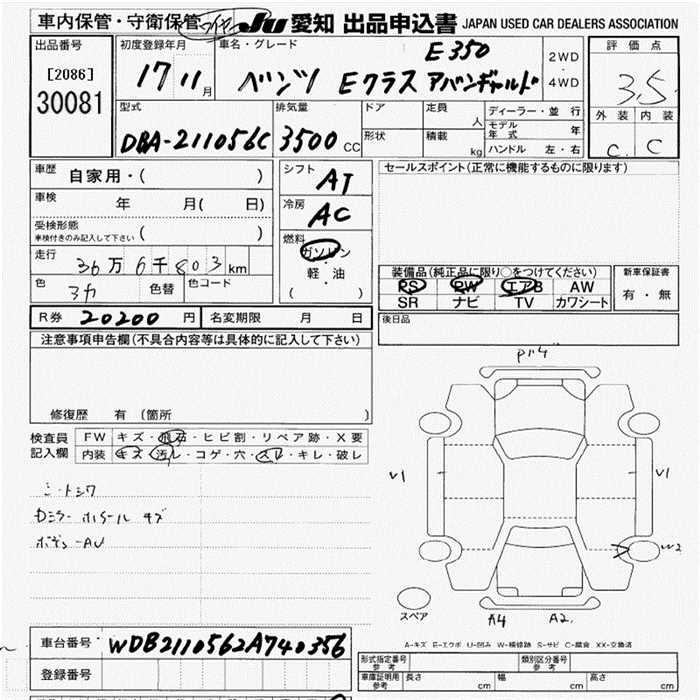 車内保管・守衛保管 JU 愛知 出品申込書 JAPAN USED CAR DEALERS ASSOCIATION
出品番号
[2086]
30081
初度登録年月
17 11月
車名・グレード
E350
ベンツ Eクラス アバンギャルド
2WD
・
4WD
評価点
3.5
外装 内装
C C
型式
DBA-211056C
排気量
3500 CC
ドア
形状
定員 人
積載 kg
ディーラー・並行
モデル年式 年
ハンドル 左・右
車歴
自家用・( )
車検 年 月( 日)
受検形態
車検付きのみ記入して下さい ( )
走行
36万6千803km
色 色替 色コード
シフト AT
冷房 AC
燃料
ガソリン
軽・油
( )
セールスポイント(正常に機能するものに限ります)
装備品(純正品に限り○をつけてください)
PS PW エアB AW
SR ナビ TV カワシート
新車保証書
有・無
R券 20200 円 名変期限 月 日
後日品
注意事項申告欄(不具合内容等は具体的に記入して下さい)
修復歴 有(箇所
検査員記入欄
FW キズ・飛石・ヒビ割・リペア跡・X要
内装 キズ・汚レ・コゲ・穴・スレ・キレ・破レ
V1 V1
W2
スペア
A4 A2
A-キズ E-エクボ U-凹み W-補修跡 S-サビ C-腐食 XX-交換済
車台番号 WDB2110562A740356
登録番号
形式指定番号 参考
類別区分番号 参考
車庫証明記入欄 参考 長さ cm 幅 cm 高さ cm